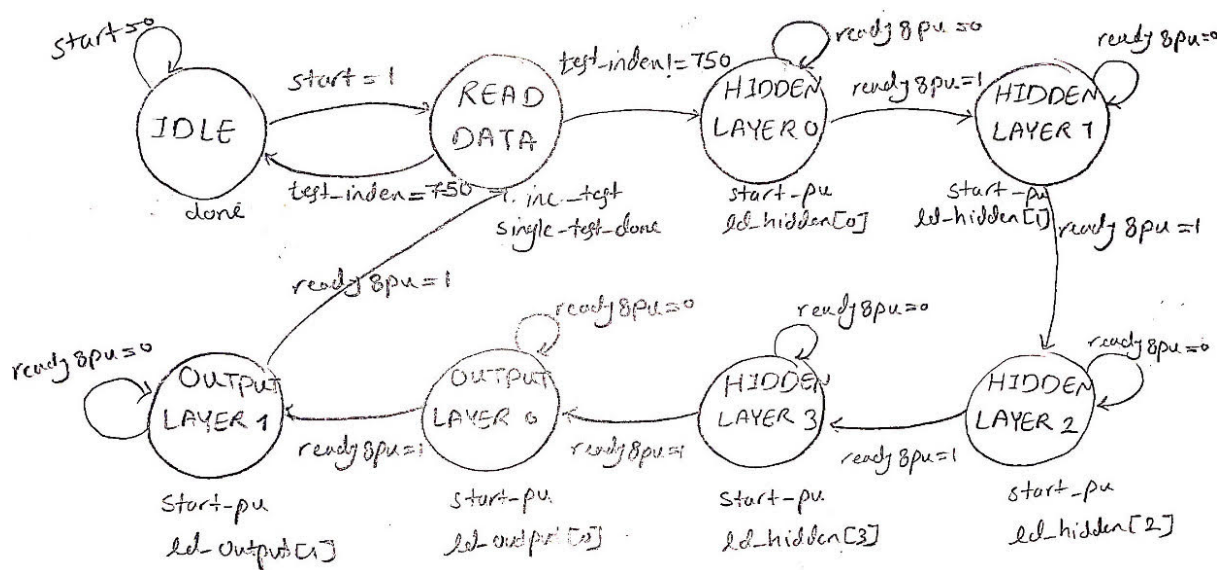 start=0
start = 1
IDLE
done
test_inden=750
READ
DATA
inc_test
single_test_done
test_inden!=750
ready8pu=0
HIDDEN
LAYER 0
start_pu
ld_hidden[0]
ready8pu=1
ready8pu=0
HIDDEN
LAYER 1
start_pu
ld_hidden[1]
ready8pu=1
ready8pu=0
HIDDEN
LAYER 2
start_pu
ld_hidden[2]
ready8pu=1
ready8pu=0
HIDDEN
LAYER 3
start-pu
ld_hidden[3]
ready8pu=1
ready8pu=0
OUTPUT
LAYER 0
start-pu
ld_output[0]
ready8pu=1
ready8pu=0
OUTPUT
LAYER 1
start-pu
ld_output[1]
ready8pu=1